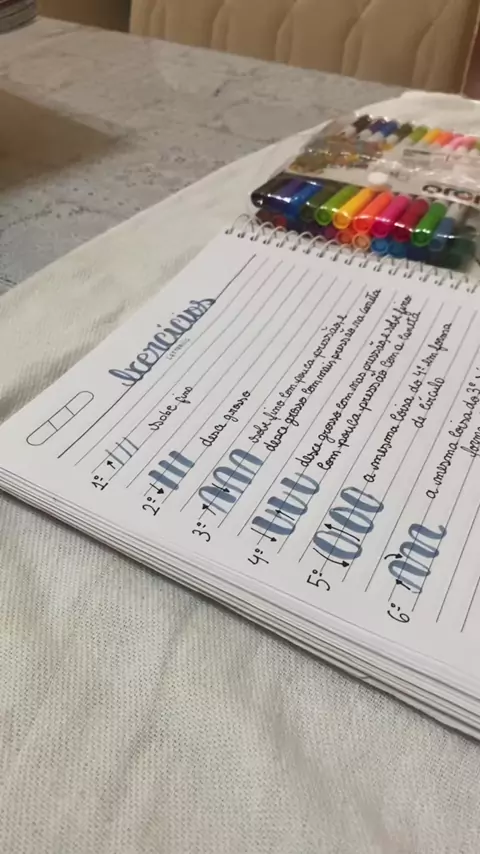 Exercícios
LETTERING
1º sobe fino
2º desce grosso
3º sobe fino com pouca pressão, e
desce grosso com mais pressão na caneta
4º desce grosso com mas pressão, e sobe fino
com pouca pressão com a caneta
5º a mesma coisa do 4º em forma
de círculo
6º a mesma coisa do 3º